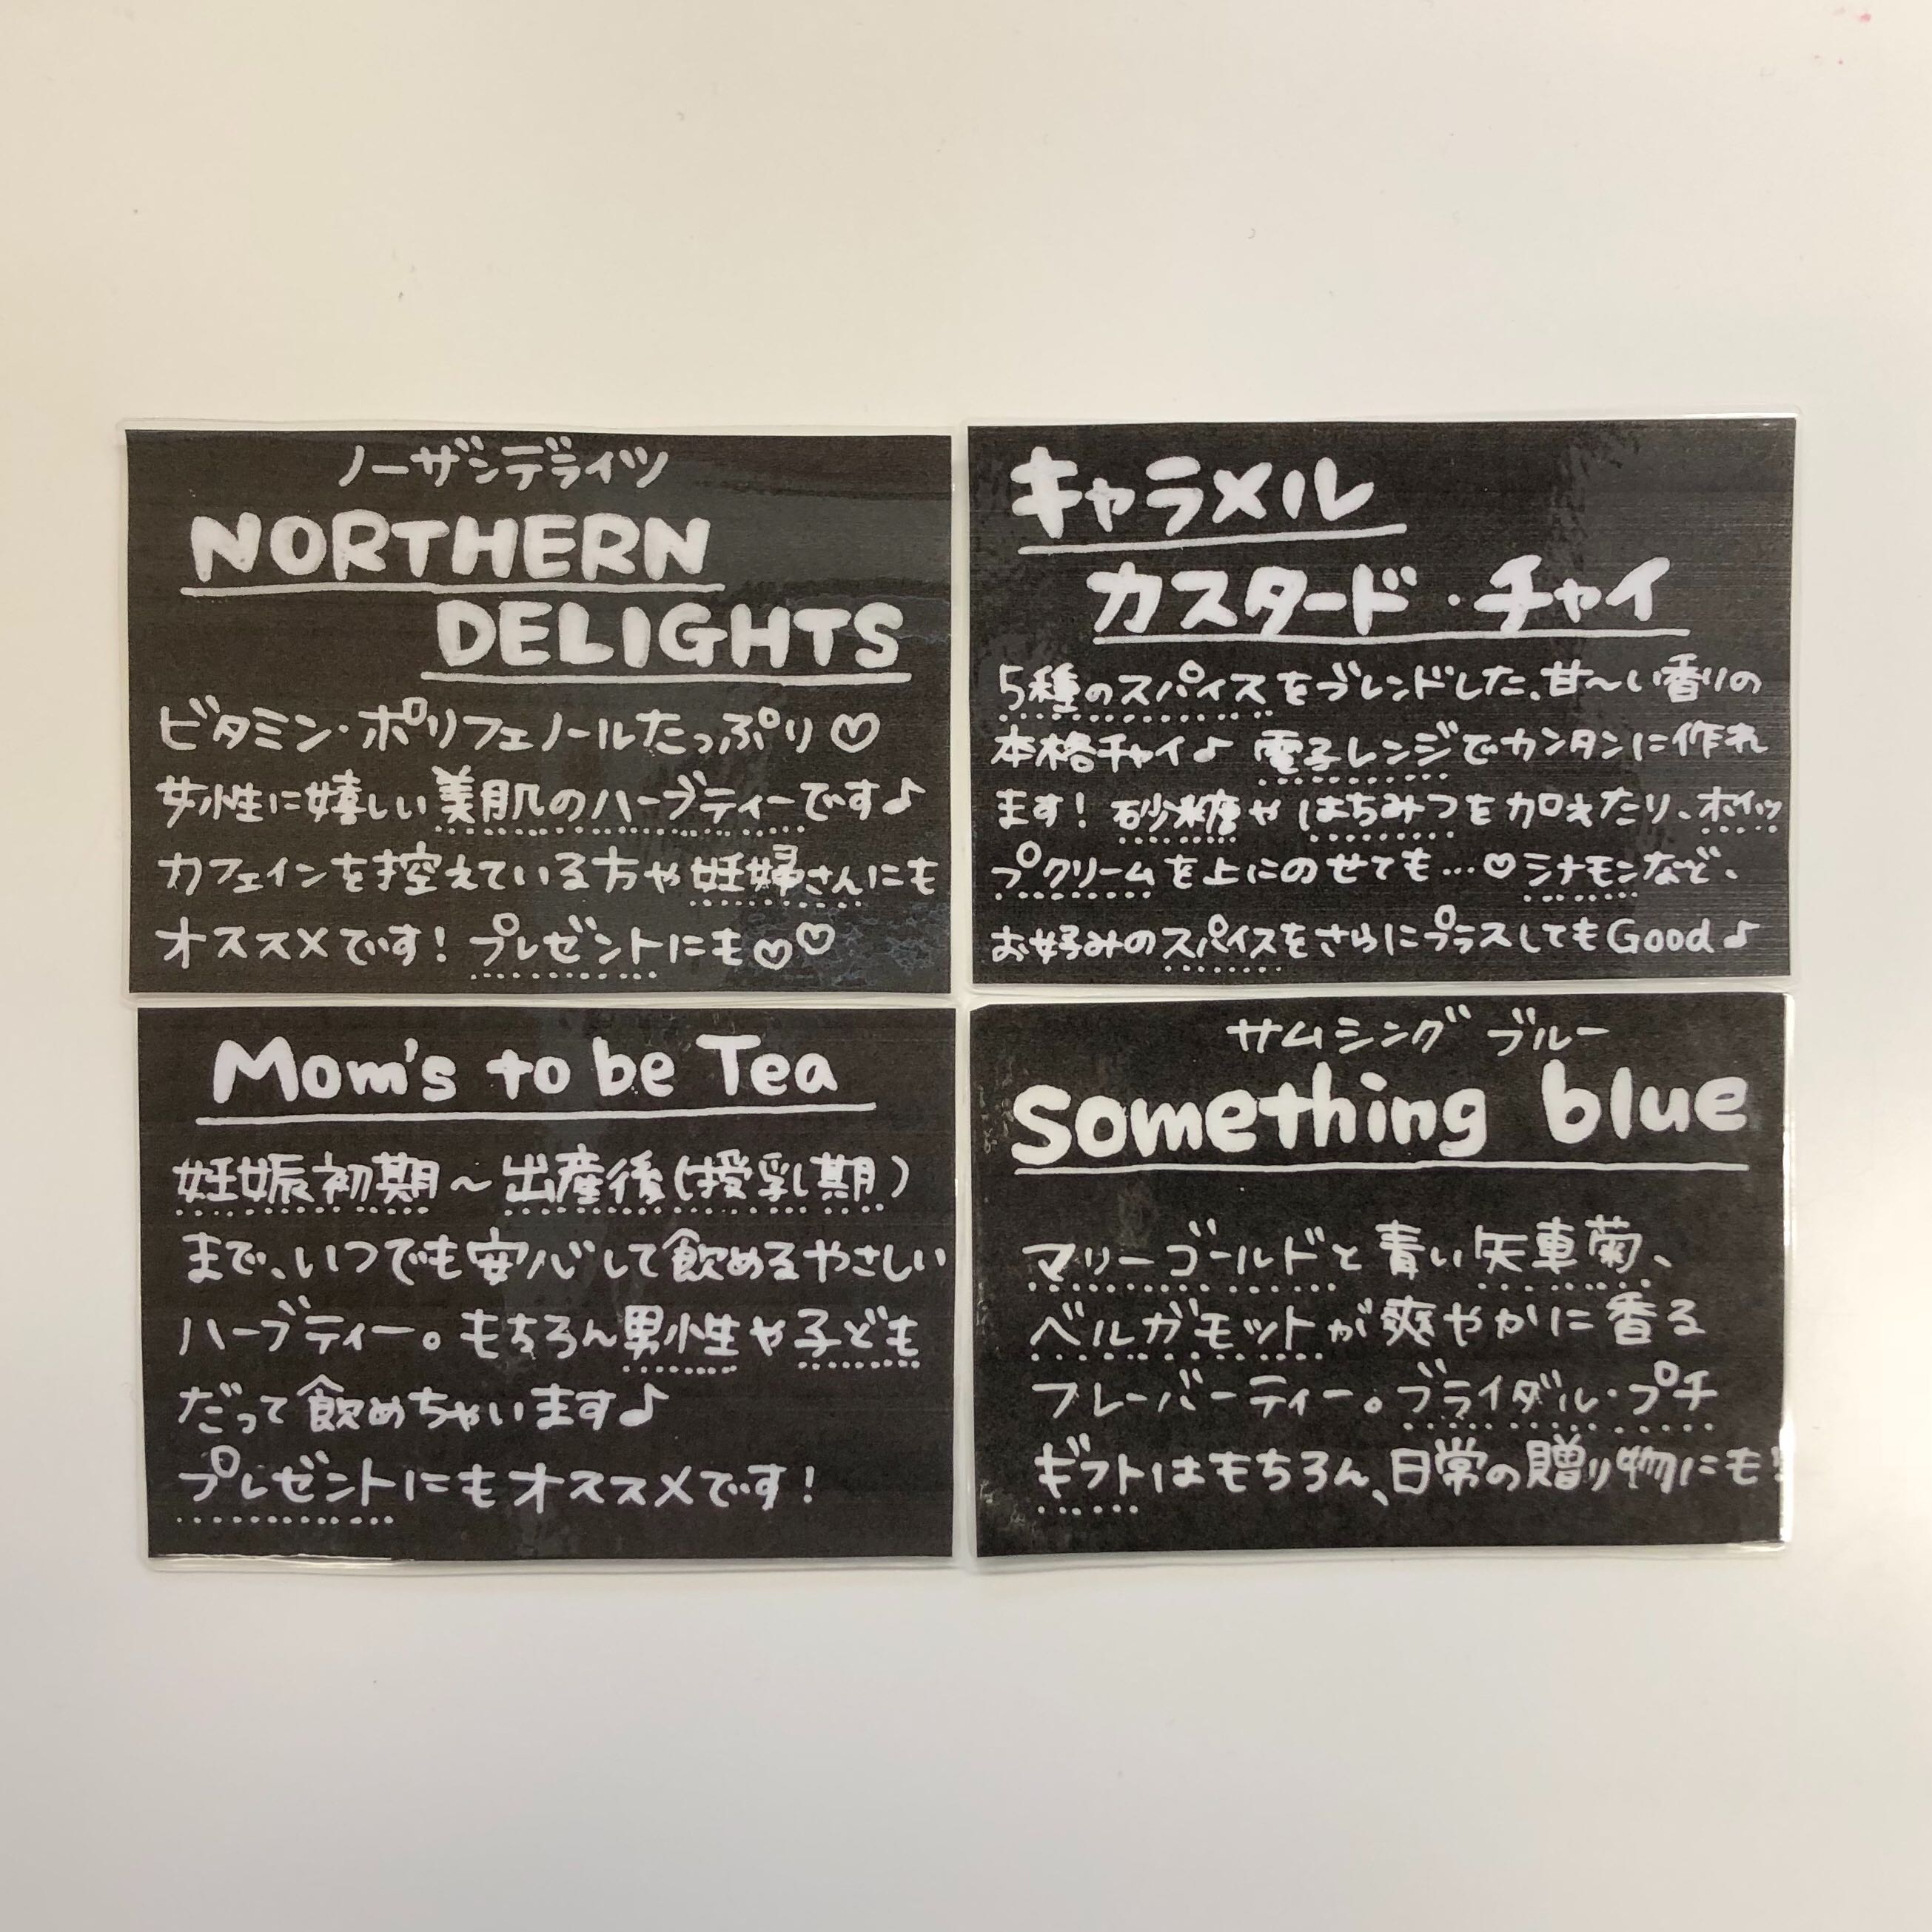 ノーザンデライツ
NORTHERN
DELIGHTS
ビタミン・ポリフェノールたっぷり♡
女性に嬉しい美肌のハーブティーです♪
カフェインを控えている方や妊婦さんにも
オススメです!プレゼントにも♡♡
キャラメル
カスタード・チャイ
5種のスパイスをブレンドした、甘〜い香りの
本格チャイ♪電子レンジでカンタンに作れ
ます!砂糖やはちみつを加えたり、ホイッ
プクリームを上にのせても…♡シナモンなど、
お好みのスパイスをさらにプラスしてもGood♪
Mom's to be Tea
妊娠初期〜出産後(授乳期)
まで、いつでも安心して飲めるやさしい
ハーブティー。もちろん男性や子ども
だって飲めちゃいます♪
プレゼントにもオススメです!
サムシング ブルー
something blue
マリーゴールドと青い矢車菊、
ベルガモットが爽やかに香る
フレーバーティー。ブライダル・プチ
ギフトはもちろん、日常の贈り物にも!